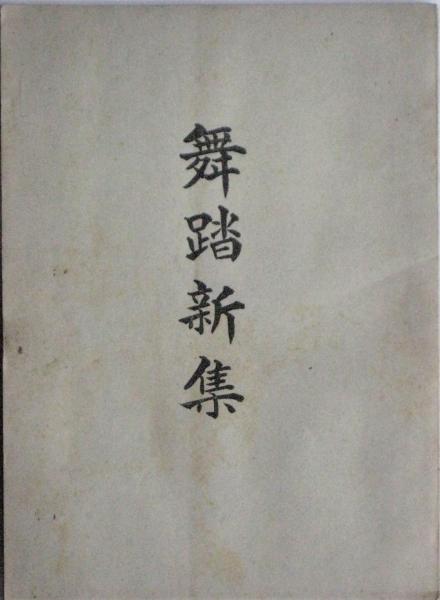 舞踏新集